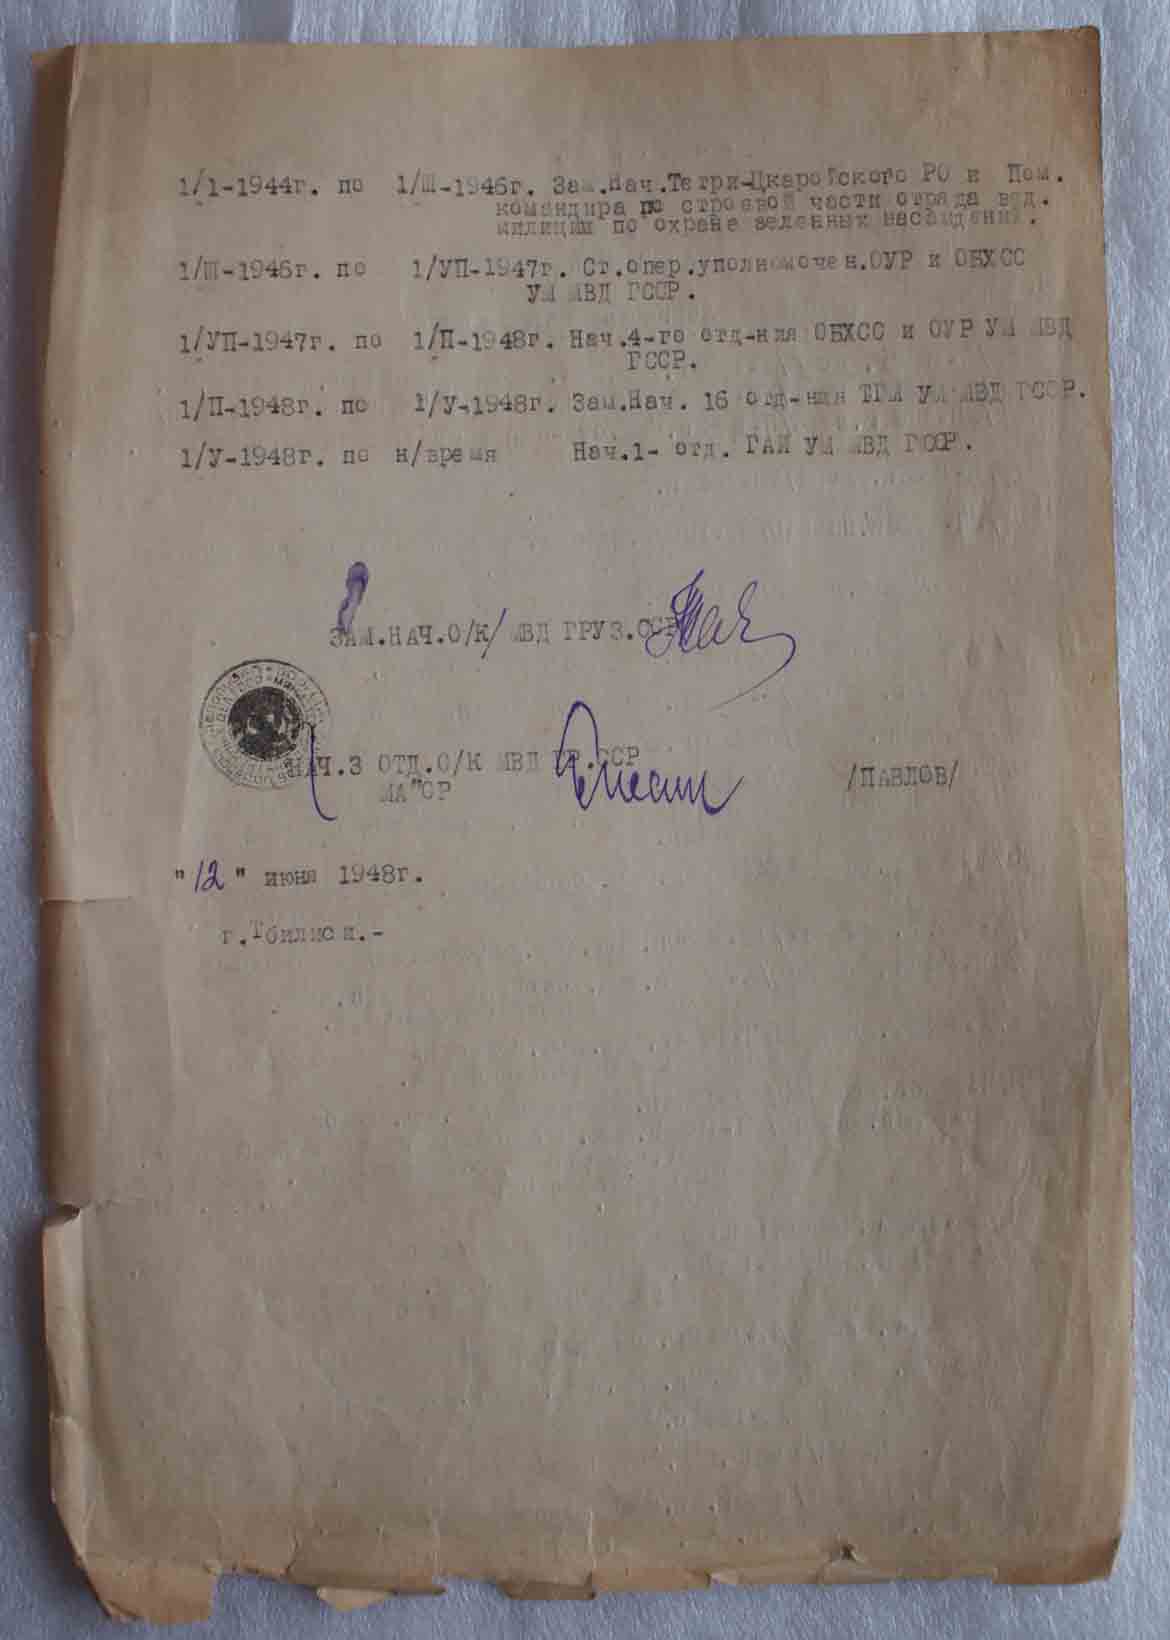 1/1-1944г. по 1/Ш-1946г. Зам.Нач.Тетри-Цкаройского РО и Пом.
командира по строевой части отряда вед.
милиции по охране зеленных насаждений.
1/Ш-1946г. по 1/УП-1947г. Ст.опер.уполномочен.ОУР и ОБХСС
УМ МВД ГССР.
1/УП-1947г. по 1/П-1948г. Нач.4-го отд-ния ОБХСС и ОУР УМ МВД
ГССР.
1/П-1948г. по 1/У-1948г. Зам.Нач. 16 отд-ния ТГМ УМ МВД ГССР.
1/У-1948г. по н/время Нач.1- отд. ГАИ УМ МВД ГССР.
ЗАМ.НАЧ.О/К/ МВД ГРУЗ.ССР
НАЧ.3 ОТД.О/К МВД ГР.ССР
МА"ОР /ПАВЛОВ/
"12" июня 1948г.
г.Тбилиси.-